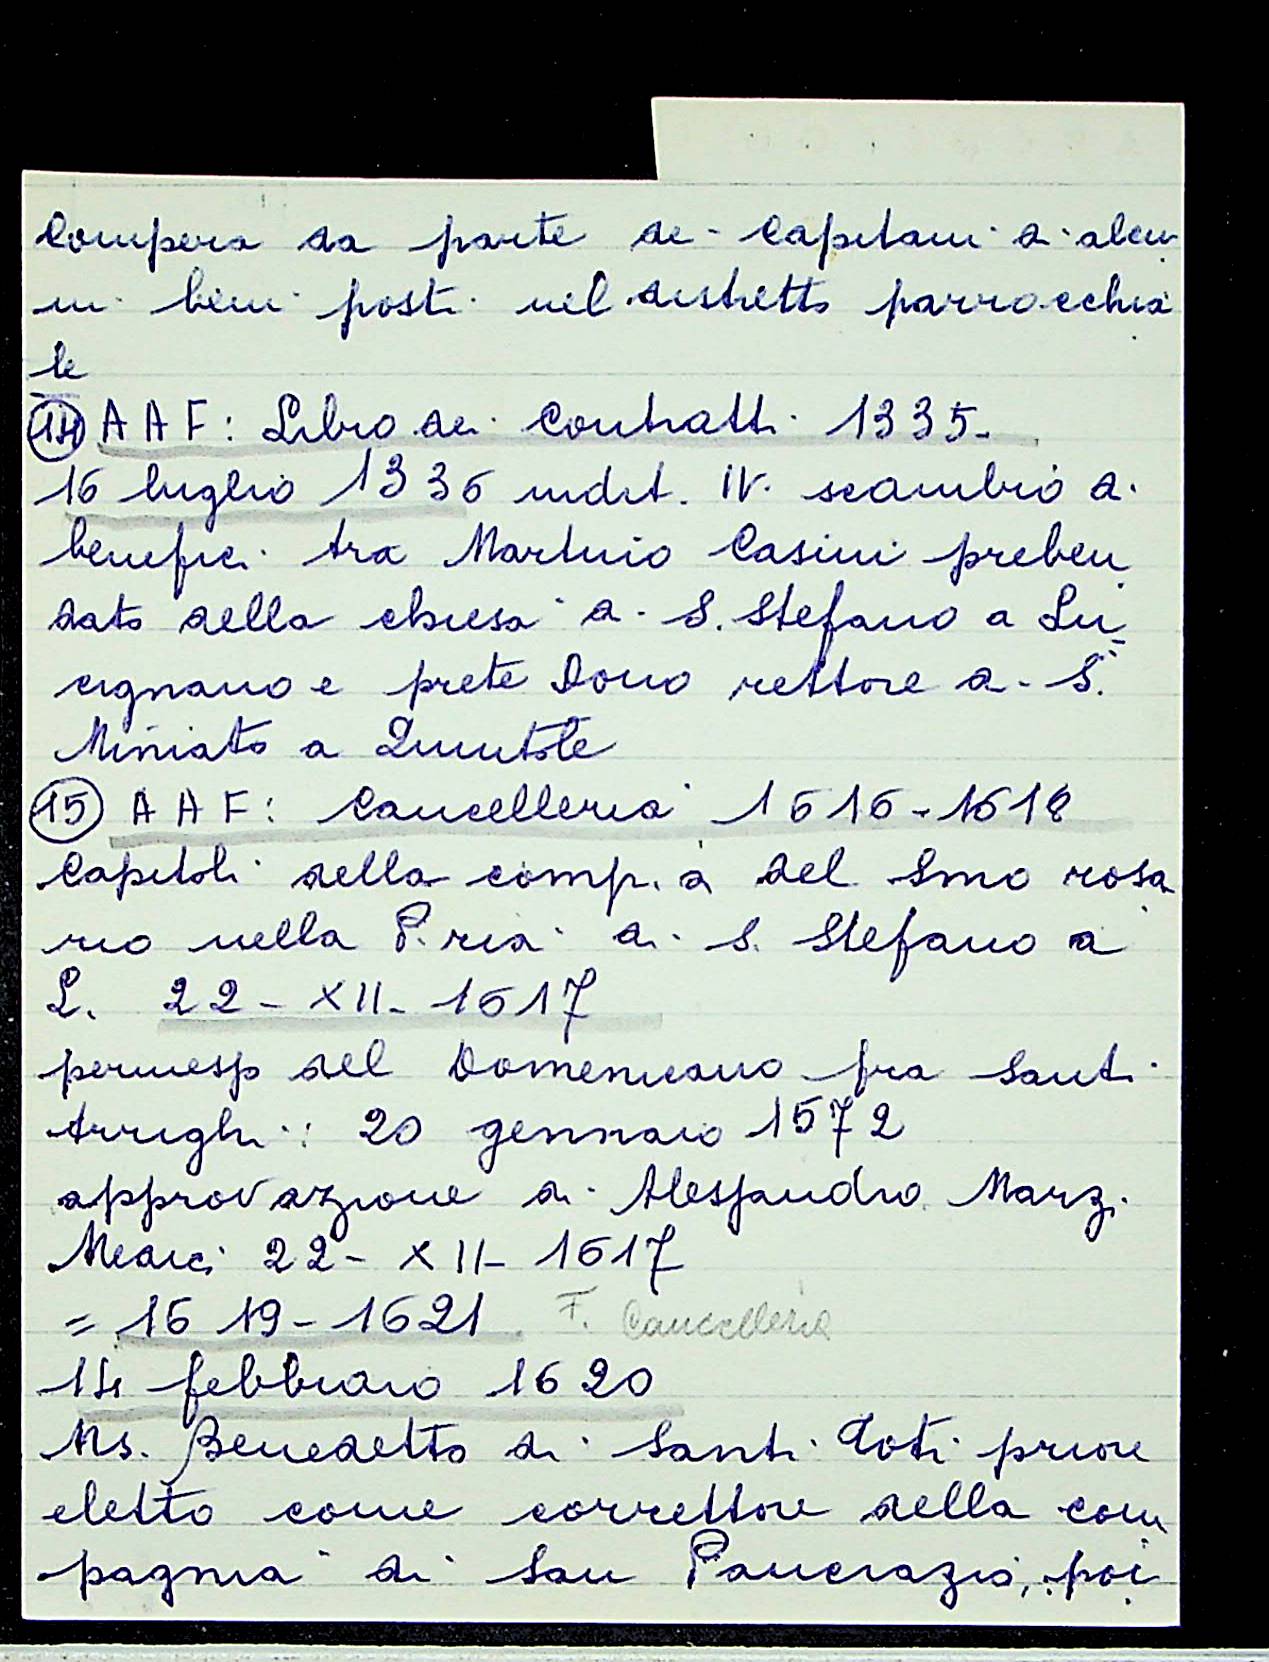 Compera da parte dei Capitani di alcu
ni beni posti nel distretto parrocchia
le
(14) AAF: Libro dei Contratti 1335-
16 luglio 1336 indit. IV. scambio di
benefici tra Martino Casini preben
dato della chiesa di S. Stefano a Lu
cignano e prete Dono rettore di S.
Miniato a Quintole
(15) AAF: Cancelleria 1616-1618
Capitoli della comp.a del Smo rosa
rio nella P.ria di S. Stefano a
L. 22-XII-1617
permesso del Domenicano fra Santi
Arrighi: 20 gennaio 1572
approvazione di Alessandro Marzi
Medici 22-XII-1617
= 1619-1621 F. Cancelleria
14 febbraio 1620
Ms. Benedetto di Santi Goti priore
eletto come correttore della com
pagnia di San Pancrazio, poi